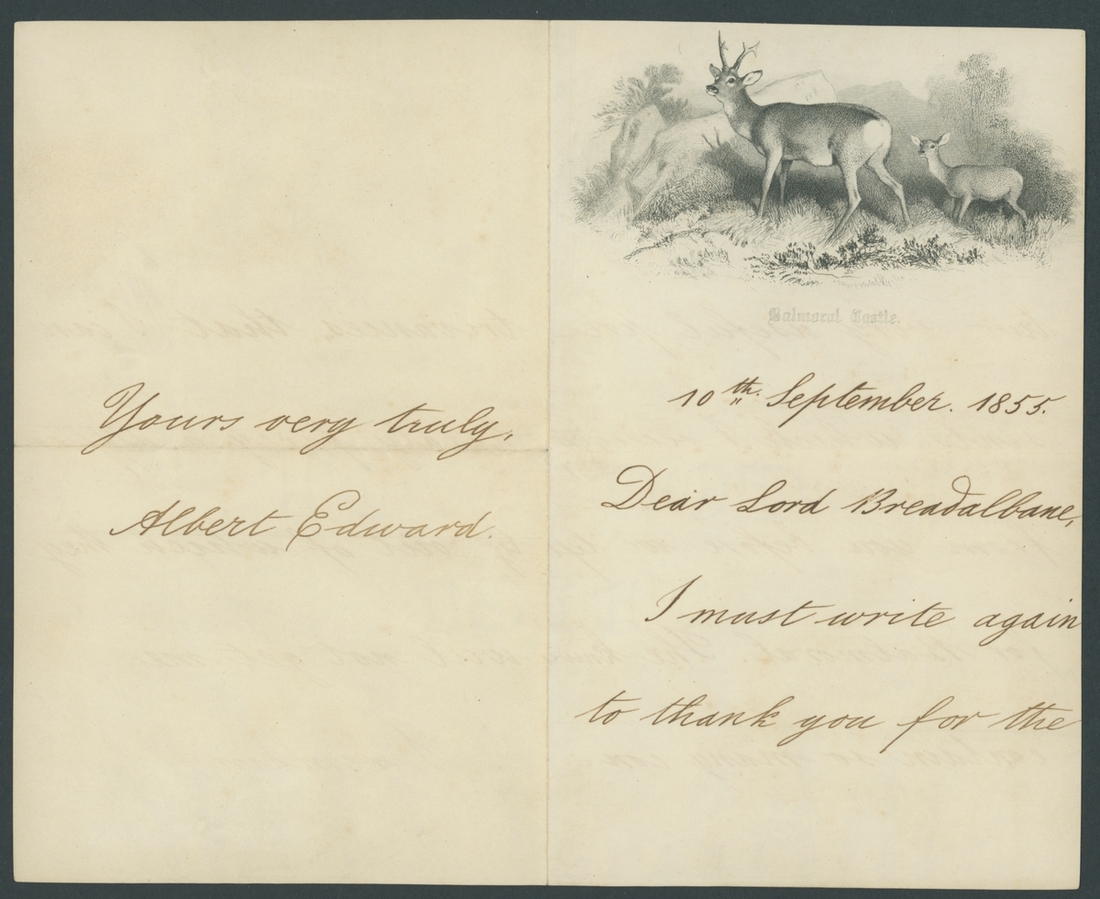 Balmoral Castle.
10th. September. 1855.
Dear Lord Breadalbane,
I must write again
to thank you for the
Yours very truly,
Albert Edward.